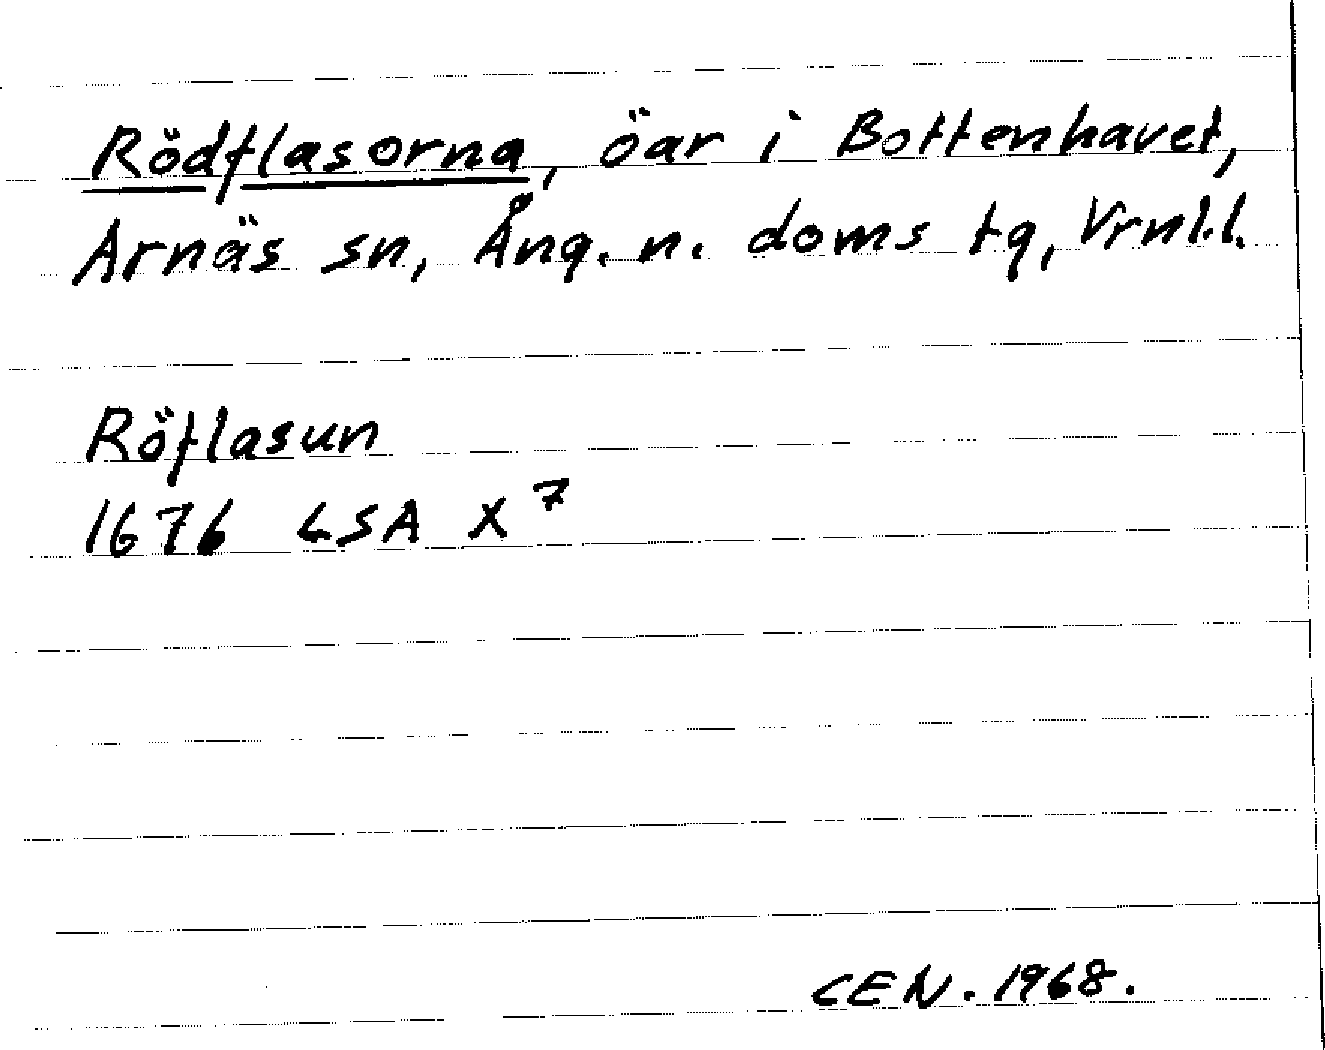 Rödflasorna, öar i Bottenhavet,
Arnäs sn, Ång. n. doms tg, Vrnl.l.
Röflasun
1676 LSA X7
CEN. 1968.